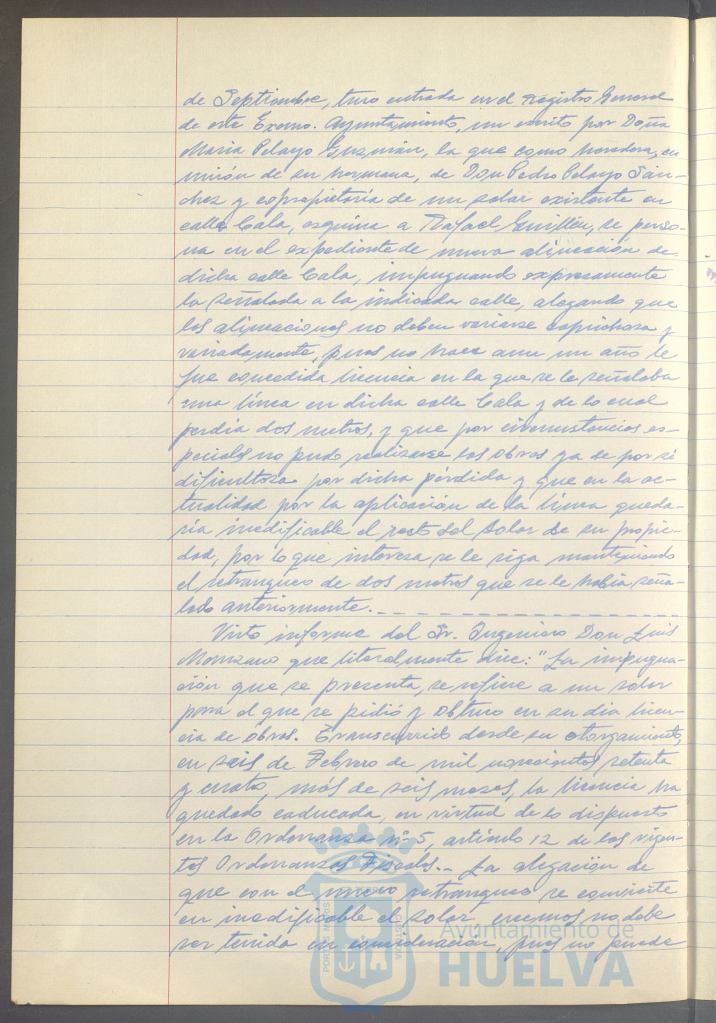 de Septiembre, tuvo entrada en el Registro General
de este Excmo. Ayuntamiento, un escrito por Doña
Maria Pelayo Guzmán, la que como heredera, en
unión de su hermana, de Don Pedro Pelayo Sán-
chez y copropietaria de un solar existente en
calle Cala, esquina a Rafael Guillén, se perso-
na en el expediente de nueva alineación de
dicha calle Cala, impugnando expresamente
la señalada a la indicada calle, alegando que
las alineaciones no deben variarse caprichosa y
variadamente, pues no hace aun un año le
fue concedida licencia en la que se le señalaba
una línea en dicha calle Cala y de lo cual
perdia dos metros, y que por circunstancias es-
peciales no pudo realizarse las obras ya de por sí
dificultosa por dicha pérdida y que en la ac-
tualidad por la aplicación de la línea queda-
ría inedificable el resto del solar de su propie-
dad, por lo que interesa se le siga manteniendo
el retranqueo de dos metros que se le había seña-
lado anteriormente.
Visto informe del Sr. Ingeniero Don Luis
Manzano que literalmente dice: "La impugna-
ción que se presenta, se refiere a un solar
para el que se pidió y obtuvo en su dia licen-
cia de obras. Transcurrido desde su otorgamiento,
en seis de Febrero de mil novecientos setenta
y cuatro, más de seis meses, la licencia ha
quedado caducada, en virtud de lo dispuesto
en la Ordenanza nº 5, artículo 12 de las vigen-
tes Ordenanzas Fiscales.- La alegación de
que con el nuevo retranqueo se convierte
en inedificable el solar, creemos no debe
ser tenida en consideración, pues no puede
Ayuntamiento de
HUELVA